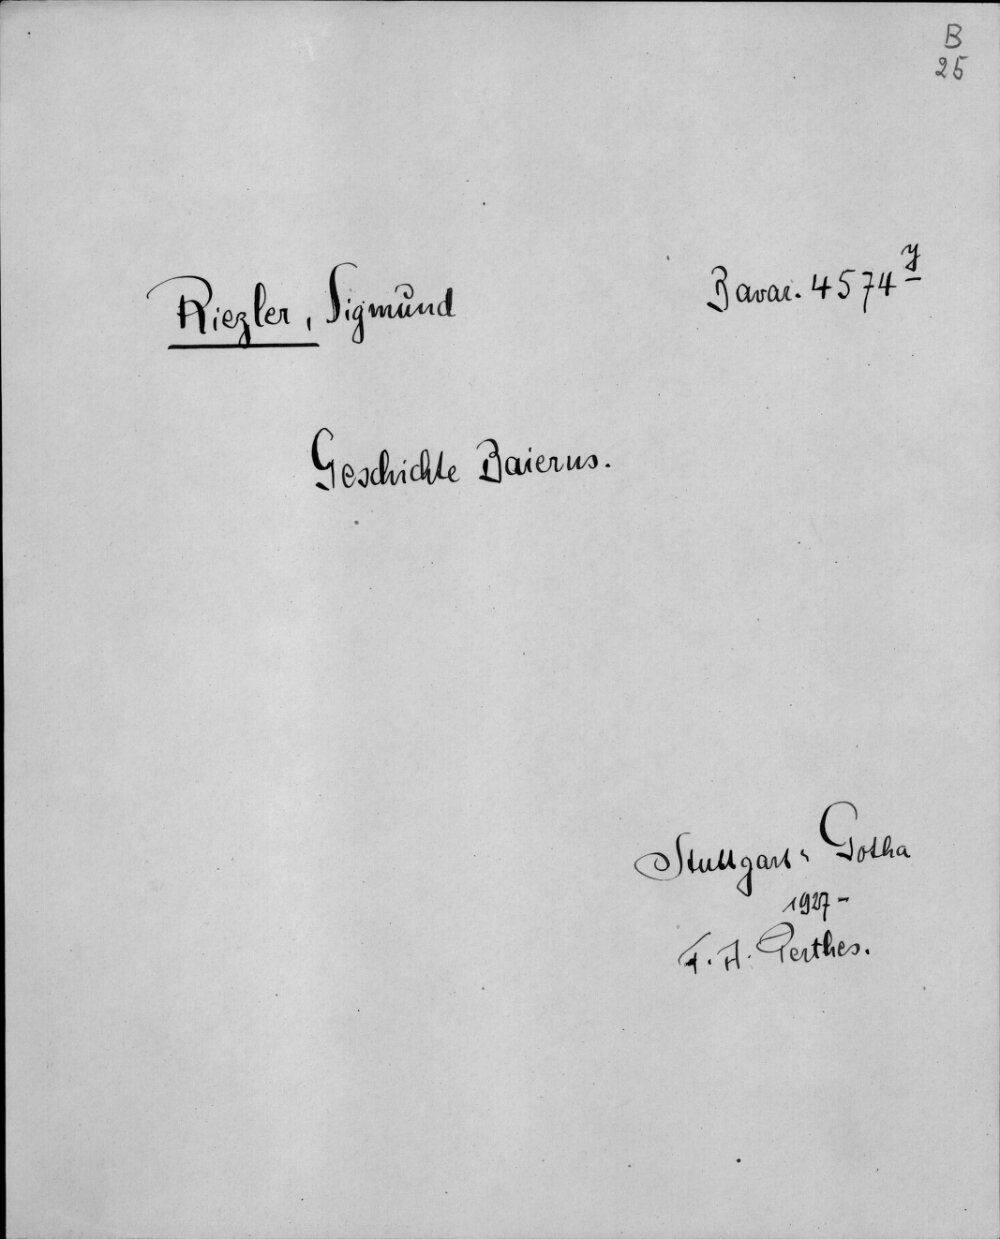 B
25
Riezler, Sigmund
Bavar. 4574 y
Geschichte Baierns.
Stuttgart-Gotha
1927-
F. A. Perthes.